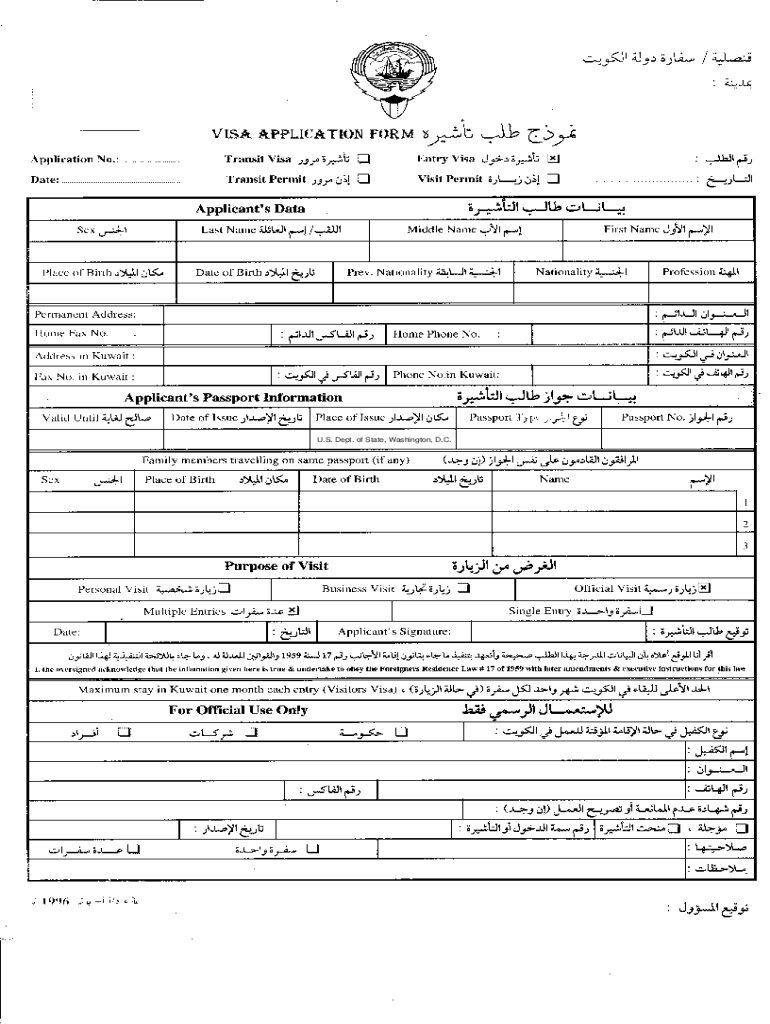 قنصلية / سفارة دولة الكويت
بمدينة :
VISA APPLICATION FORM نموذج طلب تأشيرة
Application No.: .................... Transit Visa تأشيرة مرور ☐ Entry Visa تأشيرة دخول ☒ رقم الطلب :
Date: .......................................... Transit Permit إذن مرور ☐ Visit Permit إذن زيارة ☐ التاريخ : ........................
Applicant's Data بيانات طالب التأشيرة
Sex الجنس Last Name اللقب/إسم العائلة Middle Name إسم الأب First Name الإسم الأول
Place of Birth مكان الميلاد Date of Birth تاريخ الميلاد Prev. Nationality الجنسية السابقة Nationality الجنسية Profession المهنة
Permanent Address: العنوان الدائم :
Home Fax No. : رقم الفاكس الدائم : Home Phone No. : رقم الهاتف الدائم :
Address in Kuwait : العنوان في الكويت :
Fax No. in Kuwait : رقم الفاكس في الكويت : Phone No.in Kuwait: رقم الهاتف في الكويت :
Applicant's Passport Information بيانات جواز طالب التأشيرة
Valid Until صالح لغاية Date of Issue تاريخ الإصدار Place of Issue مكان الإصدار Passport Type نوع الجواز Passport No. رقم الجواز
U.S. Dept. of State, Washington, D.C.
Family members travelling on same passport (if any) المرافقون القادمون على نفس الجواز (إن وجد)
Sex الجنس Place of Birth مكان الميلاد Date of Birth تاريخ الميلاد Name الإسم
1
2
3
Purpose of Visit الغرض من الزيارة
Personal Visit زيارة شخصية ☐ Business Visit زيارة تجارية ☐ Official Visit زيارة رسمية ☒
Multiple Entries عدة سفرات ☒ Single Entry سفرة واحدة ☐
Date: التاريخ : Applicant's Signature: توقيع طالب التأشيرة :
أقر أنا الموقع أعلاه بأن البيانات المدرجة بهذا الطلب صحيحة وأتعهد بتنفيذ ما جاء بقانون إقامة الأجانب رقم 17 لسنة 1959 والقوانين المعدلة له ، وما جاء باللائحة التنفيذية لهذا القانون
I. the oversigned acknowledge that the infomation given here is true & undertake to obey the Foreigners Residence Law # 17 of 1959 with later amendments & executive instructions for this law
Maximum stay in Kuwait one month each entry (Visitors Visa) ، الحد الأعلى للبقاء في الكويت شهر واحد لكل سفرة (في حالة الزيارة)
For Official Use Only للإستعمال الرسمي فقط
نوع الكفيل في حالة الإقامة المؤقتة للعمل في الكويت : ☐ حكومة ☐ شركات ☐ أفراد
إسم الكفيل :
العنوان :
رقم الهاتف : رقم الفاكس :
رقم شهادة عدم الممانعة أو تصريح العمل (إن وجد) :
☐ مؤجلة ، ☐ منحت التأشيرة رقم سمة الدخول أو التأشيرة : تاريخ الإصدار :
صلاحيتها : ☐ سفرة واحدة ☐ عدة سفرات
ملاحظات :
1996
توقيع المسؤول :